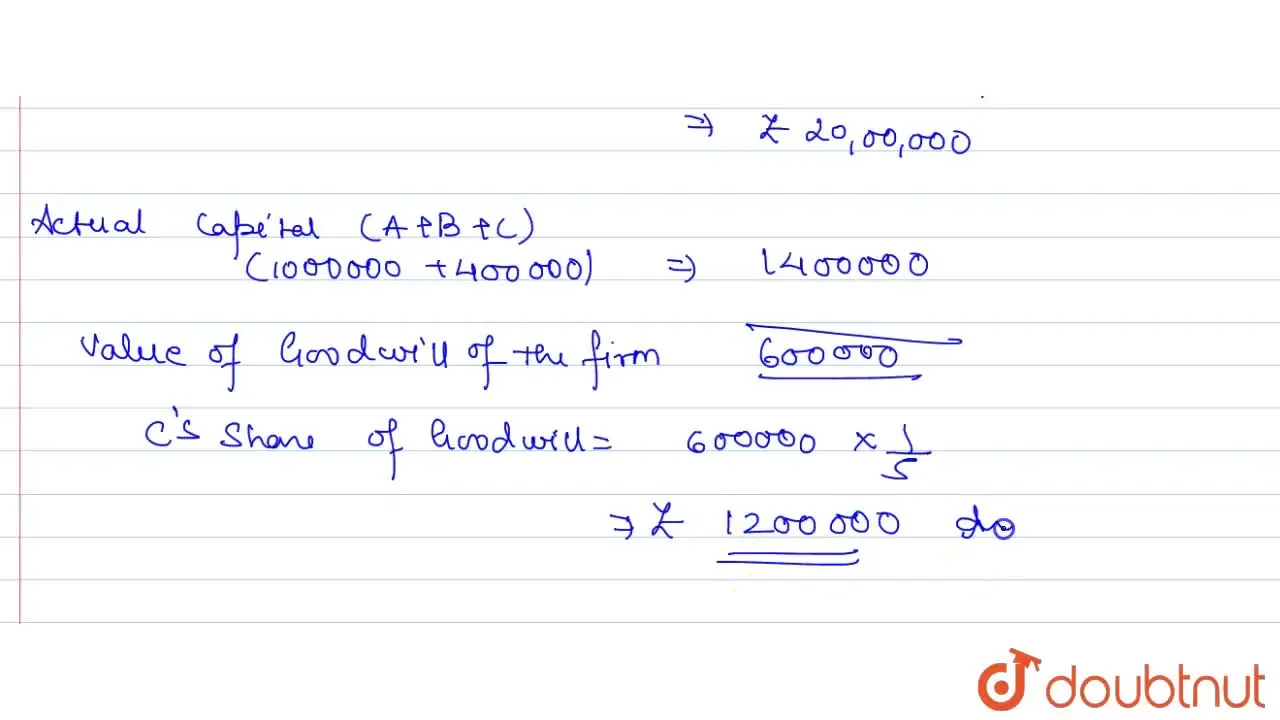 ⇒ ₹ 20,00,000
Actual Capital (A+B+C)
(1000000 + 400000) ⇒ 1400000
Value of Goodwill of the firm 600000
C's Share of Goodwill = 600000 × 1/5
⇒ ₹ 1200000
doubtnut